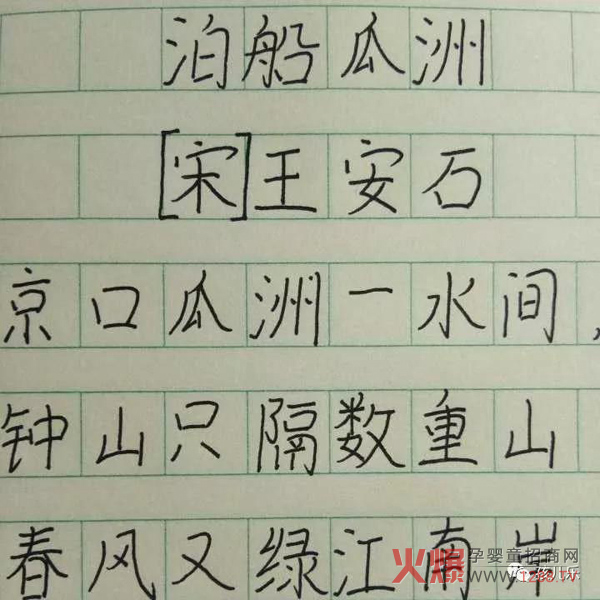 泊船瓜洲
[宋]王安石
京口瓜洲一水间,
钟山只隔数重山
春风又绿江南岸
火爆孕婴童招商网